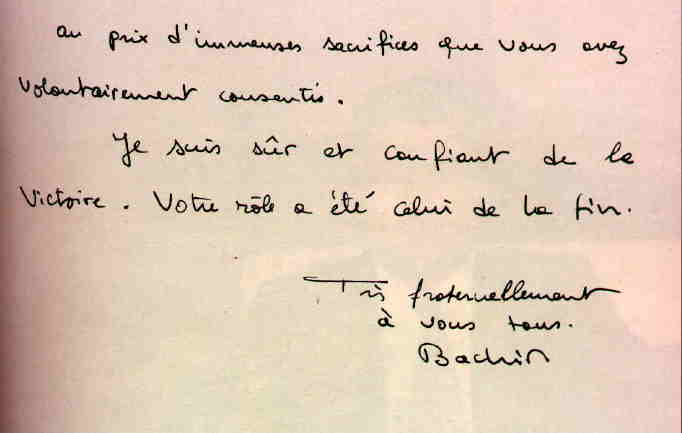 au prix d'immenses sacrifices que vous avez
volontairement consentis.
Je suis sûr et confiant de la
Victoire. Votre rôle a été celui de la fin.
Très fraternellement
à vous tous.
Bachir